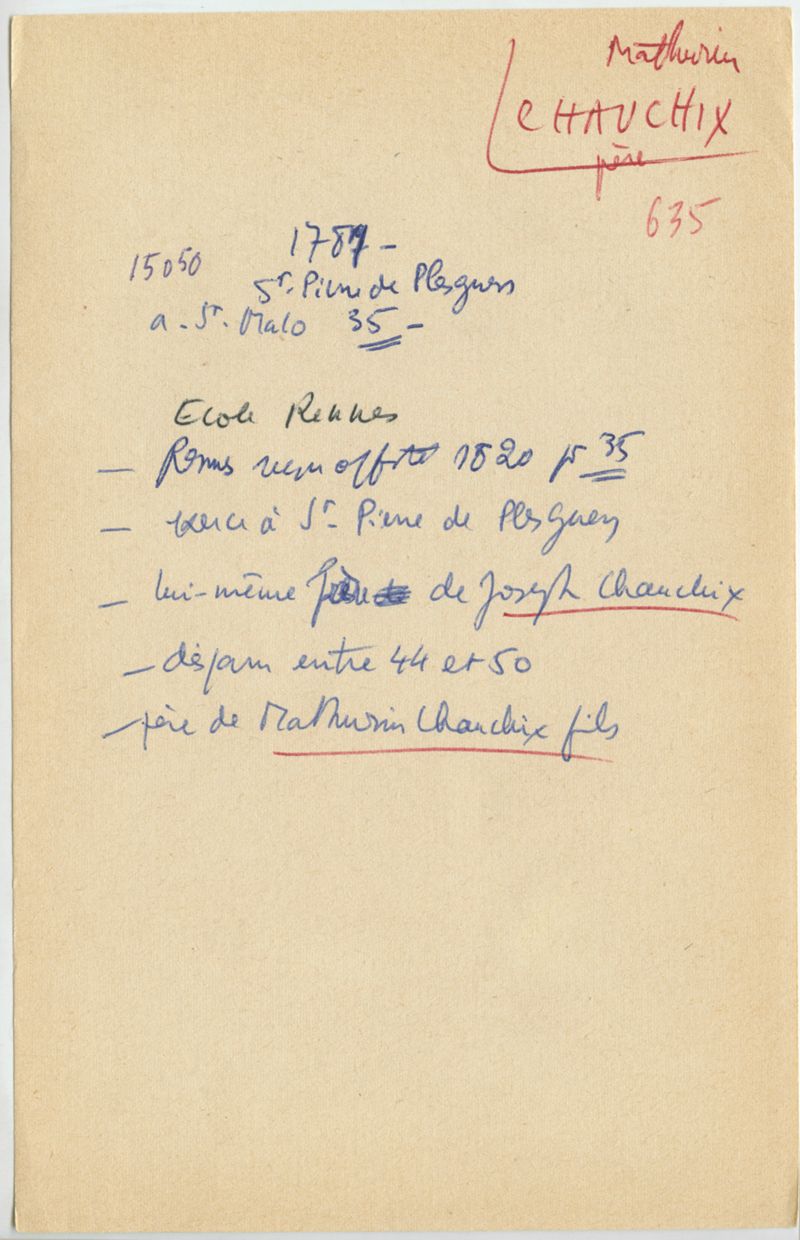 Mathurin
CHAUCHIX
père
635
1787 -
15050
St-Pierre de Plesguen
a - St. Malo 35 -
Ecole Rennes
— Rennes reçu off 1820 pr 35
— exerce à St-Pierre de Plesguen
— lui-même frère de Joseph Chauchix
— disparu entre 44 et 50
— père de Mathurin Chauchix fils